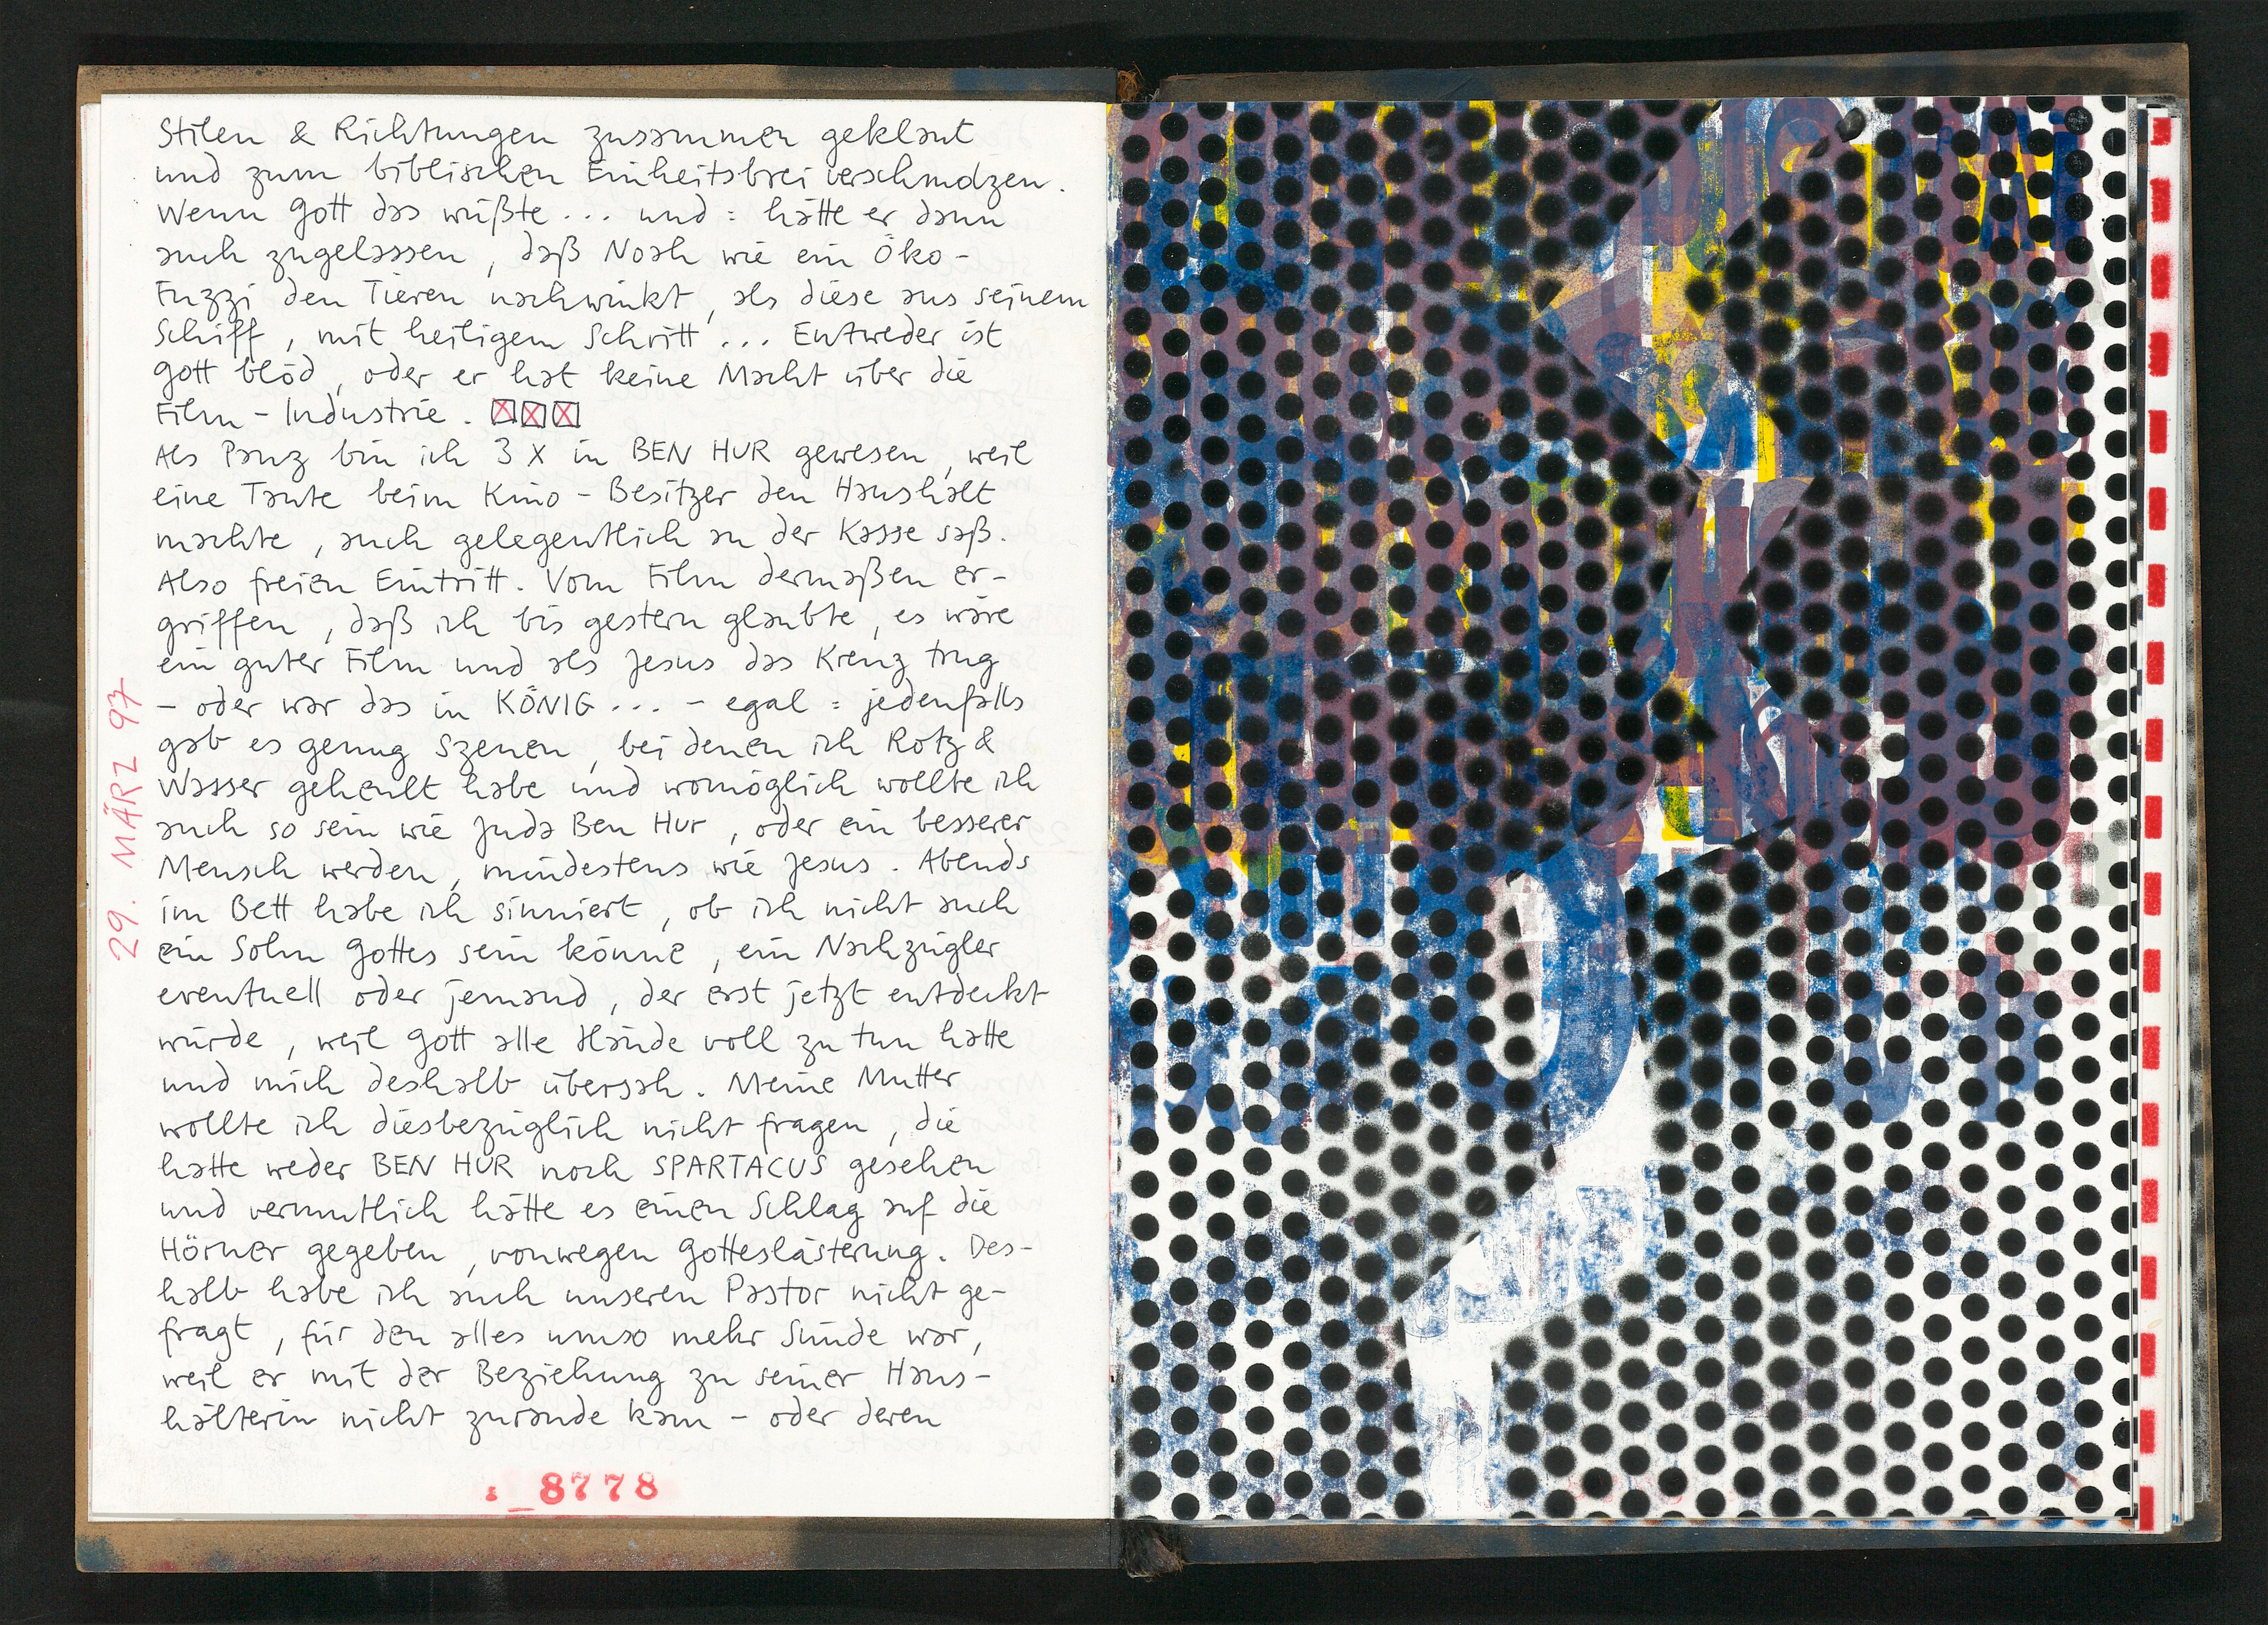 Stilen & Richtungen zusammen geklaut
und zum biblischen Einheitsbrei verschmolzen.
Wenn Gott das wüßte... und: hätte er dann
auch zugelassen, daß Noah wie ein Öko-
Fuzzi den Tieren nachwinkt, als diese aus seinem
Schiff, mit heiligem Schritt... Entweder ist
Gott blöd, oder er hat keine Macht über die
Film-Industrie.
Als Panz bin ich 3 X in BEN HUR gewesen, weil
eine Tante beim Kino-Besitzer den Haushalt
machte, auch gelegentlich an der Kasse saß.
Also freien Eintritt. Vom Film dermaßen er-
griffen, daß ich bis gestern glaubte, es wäre
ein guter Film und als Jesus das Kreuz trug
- oder war das in KÖNIG... - egal: jedenfalls
gab es genug Szenen, bei denen ich Rotz &
Wasser geheult habe und womöglich wollte ich
auch so sein wie Juda Ben Hur, oder ein besserer
Mensch werden, mindestens wie Jesus. Abends
im Bett habe ich sinniert, ob ich nicht auch
ein Sohn Gottes sein könne, ein Nachzügler
eventuell oder jemand, der erst jetzt entdeckt
würde, weil Gott alle Hände voll zu tun hatte
und mich deshalb übersah. Meine Mutter
wollte ich diesbezüglich nicht fragen, die
hatte weder BEN HUR noch SPARTACUS gesehen
und vermutlich hätte es einen Schlag auf die
Hörner gegeben, vonwegen Gotteslästerung. Des-
halb habe ich auch unseren Pastor nicht ge-
fragt, für den alles umso mehr Sünde war,
weil er mit der Beziehung zu seiner Haus-
hälterin nicht zurande kam - oder deren
29. MÄRZ 97
8778